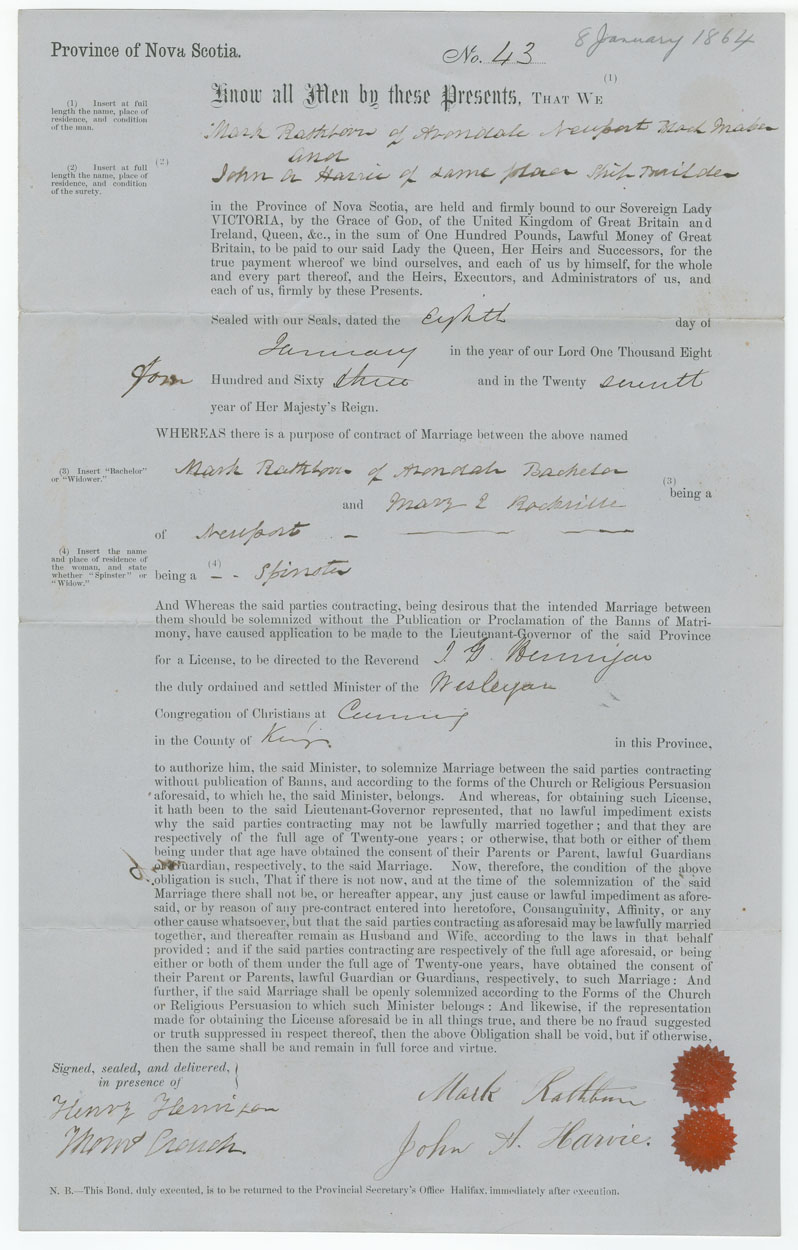 8 January 1864
Province of Nova Scotia.
No. 43
(1)
Know all Men by these Presents, THAT WE
(1) Insert at full
length the name, place of
residence, and condition
of the man.
Mark Rathbon of Avondale Newport Block Maker
and
(2)
John A Harvie of same place Ship Builder
(2) Insert at full
length the name, place of
residence, and condition
of the surety.
in the Province of Nova Scotia, are held and firmly bound to our Sovereign Lady
VICTORIA, by the Grace of GOD, of the United Kingdom of Great Britain and
Ireland, Queen, &c., in the sum of One Hundred Pounds, Lawful Money of Great
Britain, to be paid to our said Lady the Queen, Her Heirs and Successors, for the
true payment whereof we bind ourselves, and each of us by himself, for the whole
and every part thereof, and the Heirs, Executors, and Administrators of us, and
each of us, firmly by these Presents.
Sealed with our Seals, dated the Eighth day of
January in the year of our Lord One Thousand Eight
four Hundred and Sixty three and in the Twenty seventh
year of Her Majesty's Reign.
WHEREAS there is a purpose of contract of Marriage between the above named
(3) Insert "Bachelor"
or "Widower."
Mark Rathbon of Avondale Bachelor
(3)
being a
and Mary E
of Newport
(4) Insert the name
and place of residence of
the woman, and state
whether "Spinster" or
"Widow."
(4)
being a - - Spinster
And Whereas the said parties contracting, being desirous that the intended Marriage between
them should be solemnized without the Publication or Proclamation of the Banns of Matri-
mony, have caused application to be made to the Lieutenant-Governor of the said Province
for a License, to be directed to the Reverend J G Hennigar
the duly ordained and settled Minister of the Wesleyan
Congregation of Christians at
in the County of Kings in this Province,
to authorize him, the said Minister, to solemnize Marriage between the said parties contracting
without publication of Banns, and according to the forms of the Church or Religious Persuasion
aforesaid, to which he, the said Minister, belongs. And whereas, for obtaining such License,
it hath been to the said Lieutenant-Governor represented, that no lawful impediment exists
why the said parties contracting may not be lawfully married together; and that they are
respectively of the full age of Twenty-one years; or otherwise, that both or either of them
being under that age have obtained the consent of their Parents or Parent, lawful Guardians
or Guardian, respectively, to the said Marriage. Now, therefore, the condition of the above
obligation is such, That if there is not now, and at the time of the solemnization of the said
Marriage there shall not be, or hereafter appear, any just cause or lawful impediment as afore-
said, or by reason of any pre-contract entered into heretofore, Consanguinity, Affinity, or any
other cause whatsoever, but that the said parties contracting as aforesaid may be lawfully married
together, and thereafter remain as Husband and Wife, according to the laws in that behalf
provided; and if the said parties contracting are respectively of the full age aforesaid, or being
either or both of them under the full age of Twenty-one years, have obtained the consent of
their Parent or Parents, lawful Guardian or Guardians, respectively, to such Marriage: And
further, if the said Marriage shall be openly solemnized according to the Forms of the Church
or Religious Persuasion to which such Minister belongs: And likewise, if the representation
made for obtaining the License aforesaid be in all things true, and there be no fraud suggested
or truth suppressed in respect thereof, then the above Obligation shall be void, but if otherwise,
then the same shall be and remain in full force and virtue.
Signed, sealed, and delivered,
in presence of
Henry Hennigar
Crouch.
Mark Rathbun
John A. Harvie.
N. B.—This Bond, duly executed, is to be returned to the Provincial Secretary's Office Halifax, immediately after execution.